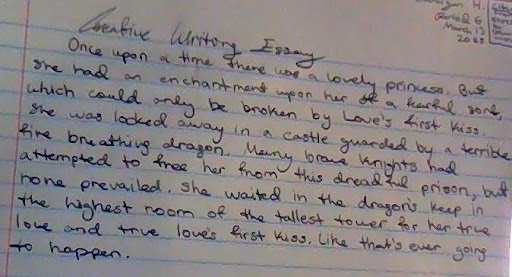 H.
Period 6
March 13
Creative Writing Essay
Once upon a time there was a lovely princess. But
she had an enchantment upon her of a fearful sort,
which could only be broken by Love's first kiss.
She was locked away in a castle guarded by a terrible
fire breathing dragon. Many brave knights had
attempted to free her from this dreadful prison, but
none prevailed. She waited in the dragon's keep in
the highest room of the tallest tower for her true
love and true love's first kiss. Like that's ever going
to happen.